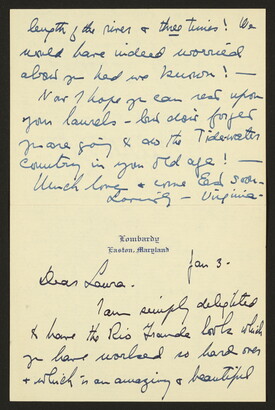 length of the river & three times! We
would have indeed worried
about you had we known! —
Now I hope you can rest upon
your laurels – but don't forget
you are going to do the Tidewater
country in your old age! —
Much love & come East soon –
Lovingly – Virginia –
Lombardy
Easton, Maryland
Jan 3 –
Dear Laura –
I am simply delighted
to have the Rio Grande book which
you have worked so hard over
& which is an amazing & beautiful